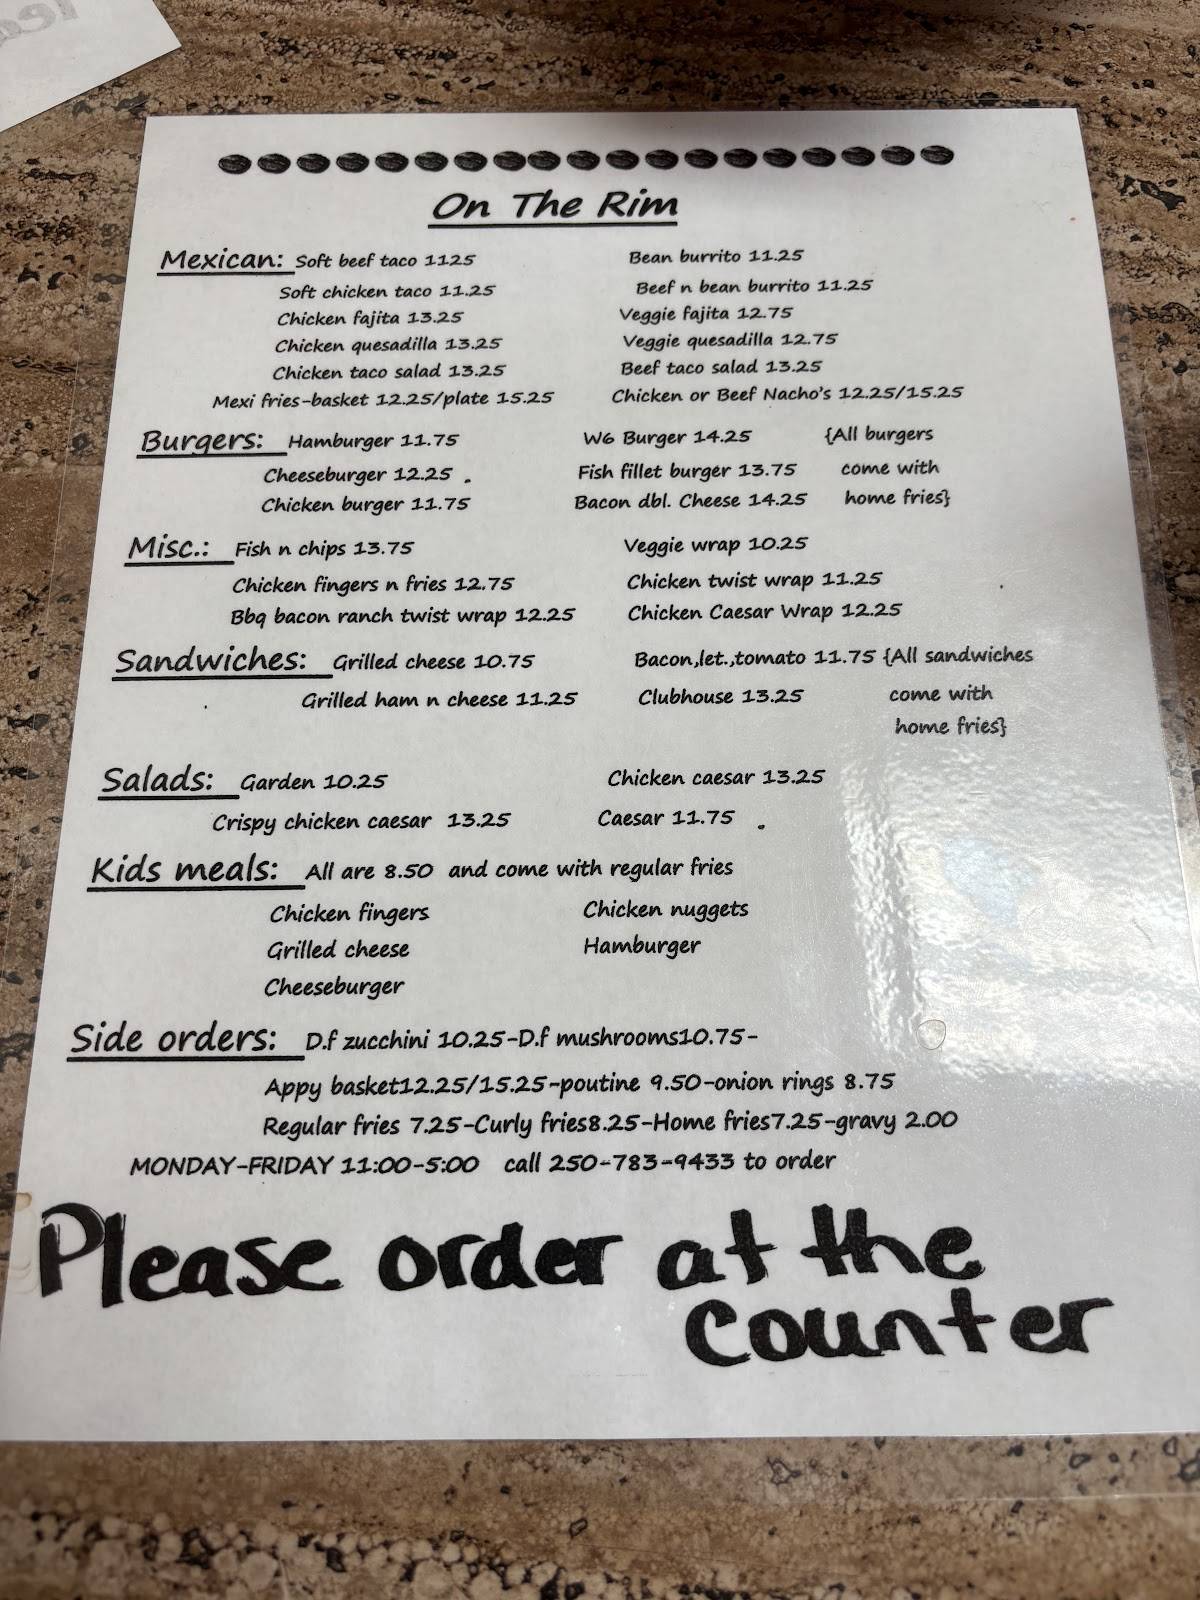 On The Rim
Mexican: Soft beef taco 1125 Bean burrito 11.25
Soft chicken taco 11.25 Beef n bean burrito 11.25
Chicken fajita 13.25 Veggie fajita 12.75
Chicken quesadilla 13.25 Veggie quesadilla 12.75
Chicken taco salad 13.25 Beef taco salad 13.25
Mexi fries-basket 12.25/plate 15.25 Chicken or Beef Nacho's 12.25/15.25
Burgers: Hamburger 11.75 W6 Burger 14.25 {All burgers
Cheeseburger 12.25 Fish fillet burger 13.75 come with
Chicken burger 11.75 Bacon dbl. Cheese 14.25 home fries}
Misc.: Fish n chips 13.75 Veggie wrap 10.25
Chicken fingers n fries 12.75 Chicken twist wrap 11.25
Bbq bacon ranch twist wrap 12.25 Chicken Caesar Wrap 12.25
Sandwiches: Grilled cheese 10.75 Bacon,let.,tomato 11.75 {All sandwiches
Grilled ham n cheese 11.25 Clubhouse 13.25 come with
home fries}
Salads: Garden 10.25 Chicken caesar 13.25
Crispy chicken caesar 13.25 Caesar 11.75
Kids meals: All are 8.50 and come with regular fries
Chicken fingers Chicken nuggets
Grilled cheese Hamburger
Cheeseburger
Side orders: D.f zucchini 10.25-D.f mushrooms10.75-
Appy basket12.25/15.25-poutine 9.50-onion rings 8.75
Regular fries 7.25-Curly fries8.25-Home fries7.25-gravy 2.00
MONDAY-FRIDAY 11:00-5:00 call 250-783-9433 to order
Please order at the
counter